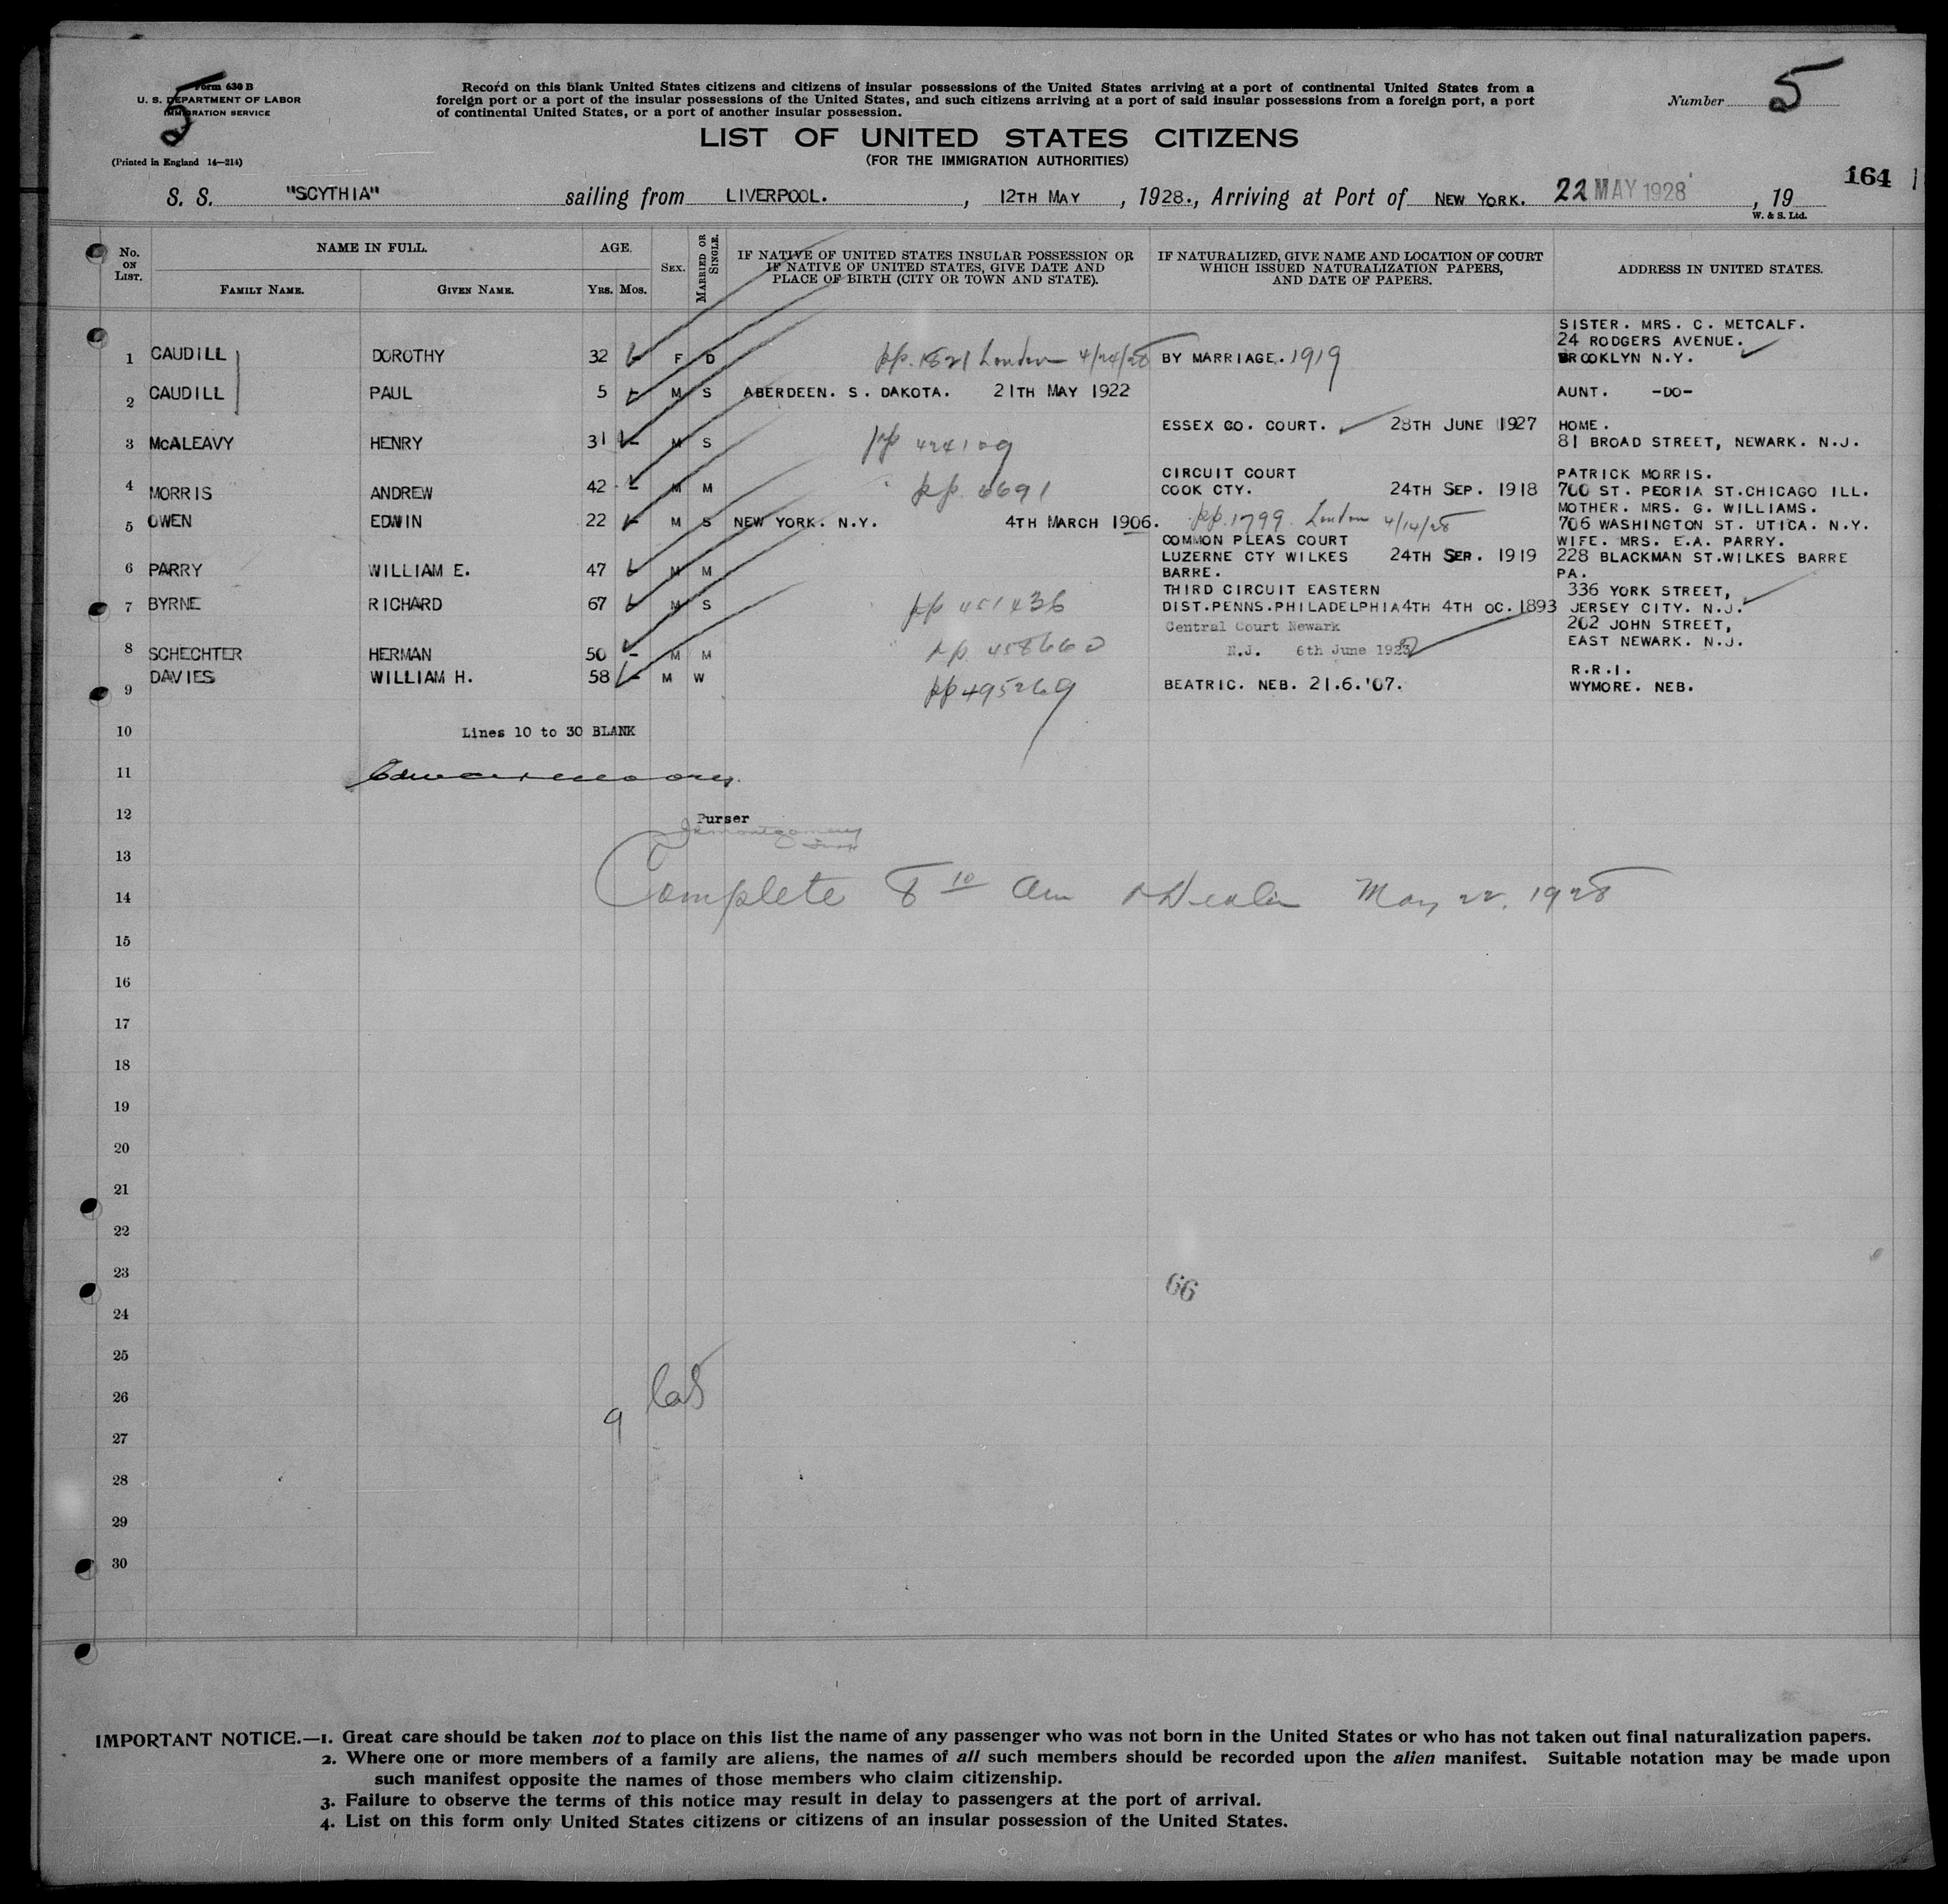 5
Form 630 B
U. S. DEPARTMENT OF LABOR
IMMIGRATION SERVICE
(Printed in England 14—214)
Record on this blank United States citizens and citizens of insular possessions of the United States arriving at a port of continental United States from a
foreign port or a port of the insular possessions of the United States, and such citizens arriving at a port of said insular possessions from a foreign port, a port
of continental United States, or a port of another insular possession.
Number 5
LIST OF UNITED STATES CITIZENS
(FOR THE IMMIGRATION AUTHORITIES)
164
S. S. "SCYTHIA" sailing from LIVERPOOL. , 12TH MAY , 1928., Arriving at Port of NEW YORK. 22 MAY 1928 , 19
W. & S. Ltd.
No. ON LIST.
NAME IN FULL.
FAMILY NAME.
GIVEN NAME.
AGE.
YRS. MOS.
SEX.
MARRIED OR SINGLE.
IF NATIVE OF UNITED STATES INSULAR POSSESSION OR
IF NATIVE OF UNITED STATES, GIVE DATE AND
PLACE OF BIRTH (CITY OR TOWN AND STATE).
IF NATURALIZED, GIVE NAME AND LOCATION OF COURT
WHICH ISSUED NATURALIZATION PAPERS,
AND DATE OF PAPERS.
ADDRESS IN UNITED STATES.
SISTER. MRS. C. METCALF.
24 RODGERS AVENUE.
1 CAUDILL DOROTHY 32 - F D pp. 1821 London 4/24/28 BY MARRIAGE. 1919 BROOKLYN N.Y.
2 CAUDILL PAUL 5 - M S ABERDEEN. S. DAKOTA. 21TH MAY 1922 AUNT. -DO-
ESSEX CO. COURT. 28TH JUNE 1927 HOME.
3 McALEAVY HENRY 31 - M S pp 424109 81 BROAD STREET, NEWARK. N.J.
CIRCUIT COURT PATRICK MORRIS.
4 MORRIS ANDREW 42 - M M pp. 6691 COOK CTY. 24TH SEP. 1918 700 ST. PEORIA ST.CHICAGO ILL.
MOTHER. MRS. G. WILLIAMS.
5 OWEN EDWIN 22 - M S NEW YORK. N.Y. 4TH MARCH 1906. pp. 1799. London 4/14/28 706 WASHINGTON ST. UTICA. N.Y.
COMMON PLEAS COURT WIFE. MRS. E.A. PARRY.
LUZERNE CTY WILKES 24TH SEP. 1919 228 BLACKMAN ST.WILKES BARRE
6 PARRY WILLIAM E. 47 - M M BARRE. PA.
THIRD CIRCUIT EASTERN 336 YORK STREET,
7 BYRNE RICHARD 67 - M S pp 451436 DIST.PENNS.PHILADELPHIA4TH 4TH OC. 1893 JERSEY CITY. N.J.
Central Court Newark 202 JOHN STREET,
EAST NEWARK. N.J.
8 SCHECHTER HERMAN 50 - M M pp. 458660 N.J. 6th June 1923
DAVIES WILLIAM H. 58 - M W R.R.I.
9 pp 495269 BEATRIC. NEB. 21.6.'07. WYMORE. NEB.
10 Lines 10 to 30 BLANK
11
12 Purser
13
14 Complete 8 10 am May 22, 1928
15
16
17
18
19
20
21
22
23 66
24
25
26
9
27
28
29
30
IMPORTANT NOTICE.—1. Great care should be taken not to place on this list the name of any passenger who was not born in the United States or who has not taken out final naturalization papers.
2. Where one or more members of a family are aliens, the names of all such members should be recorded upon the alien manifest. Suitable notation may be made upon
such manifest opposite the names of those members who claim citizenship.
3. Failure to observe the terms of this notice may result in delay to passengers at the port of arrival.
4. List on this form only United States citizens or citizens of an insular possession of the United States.